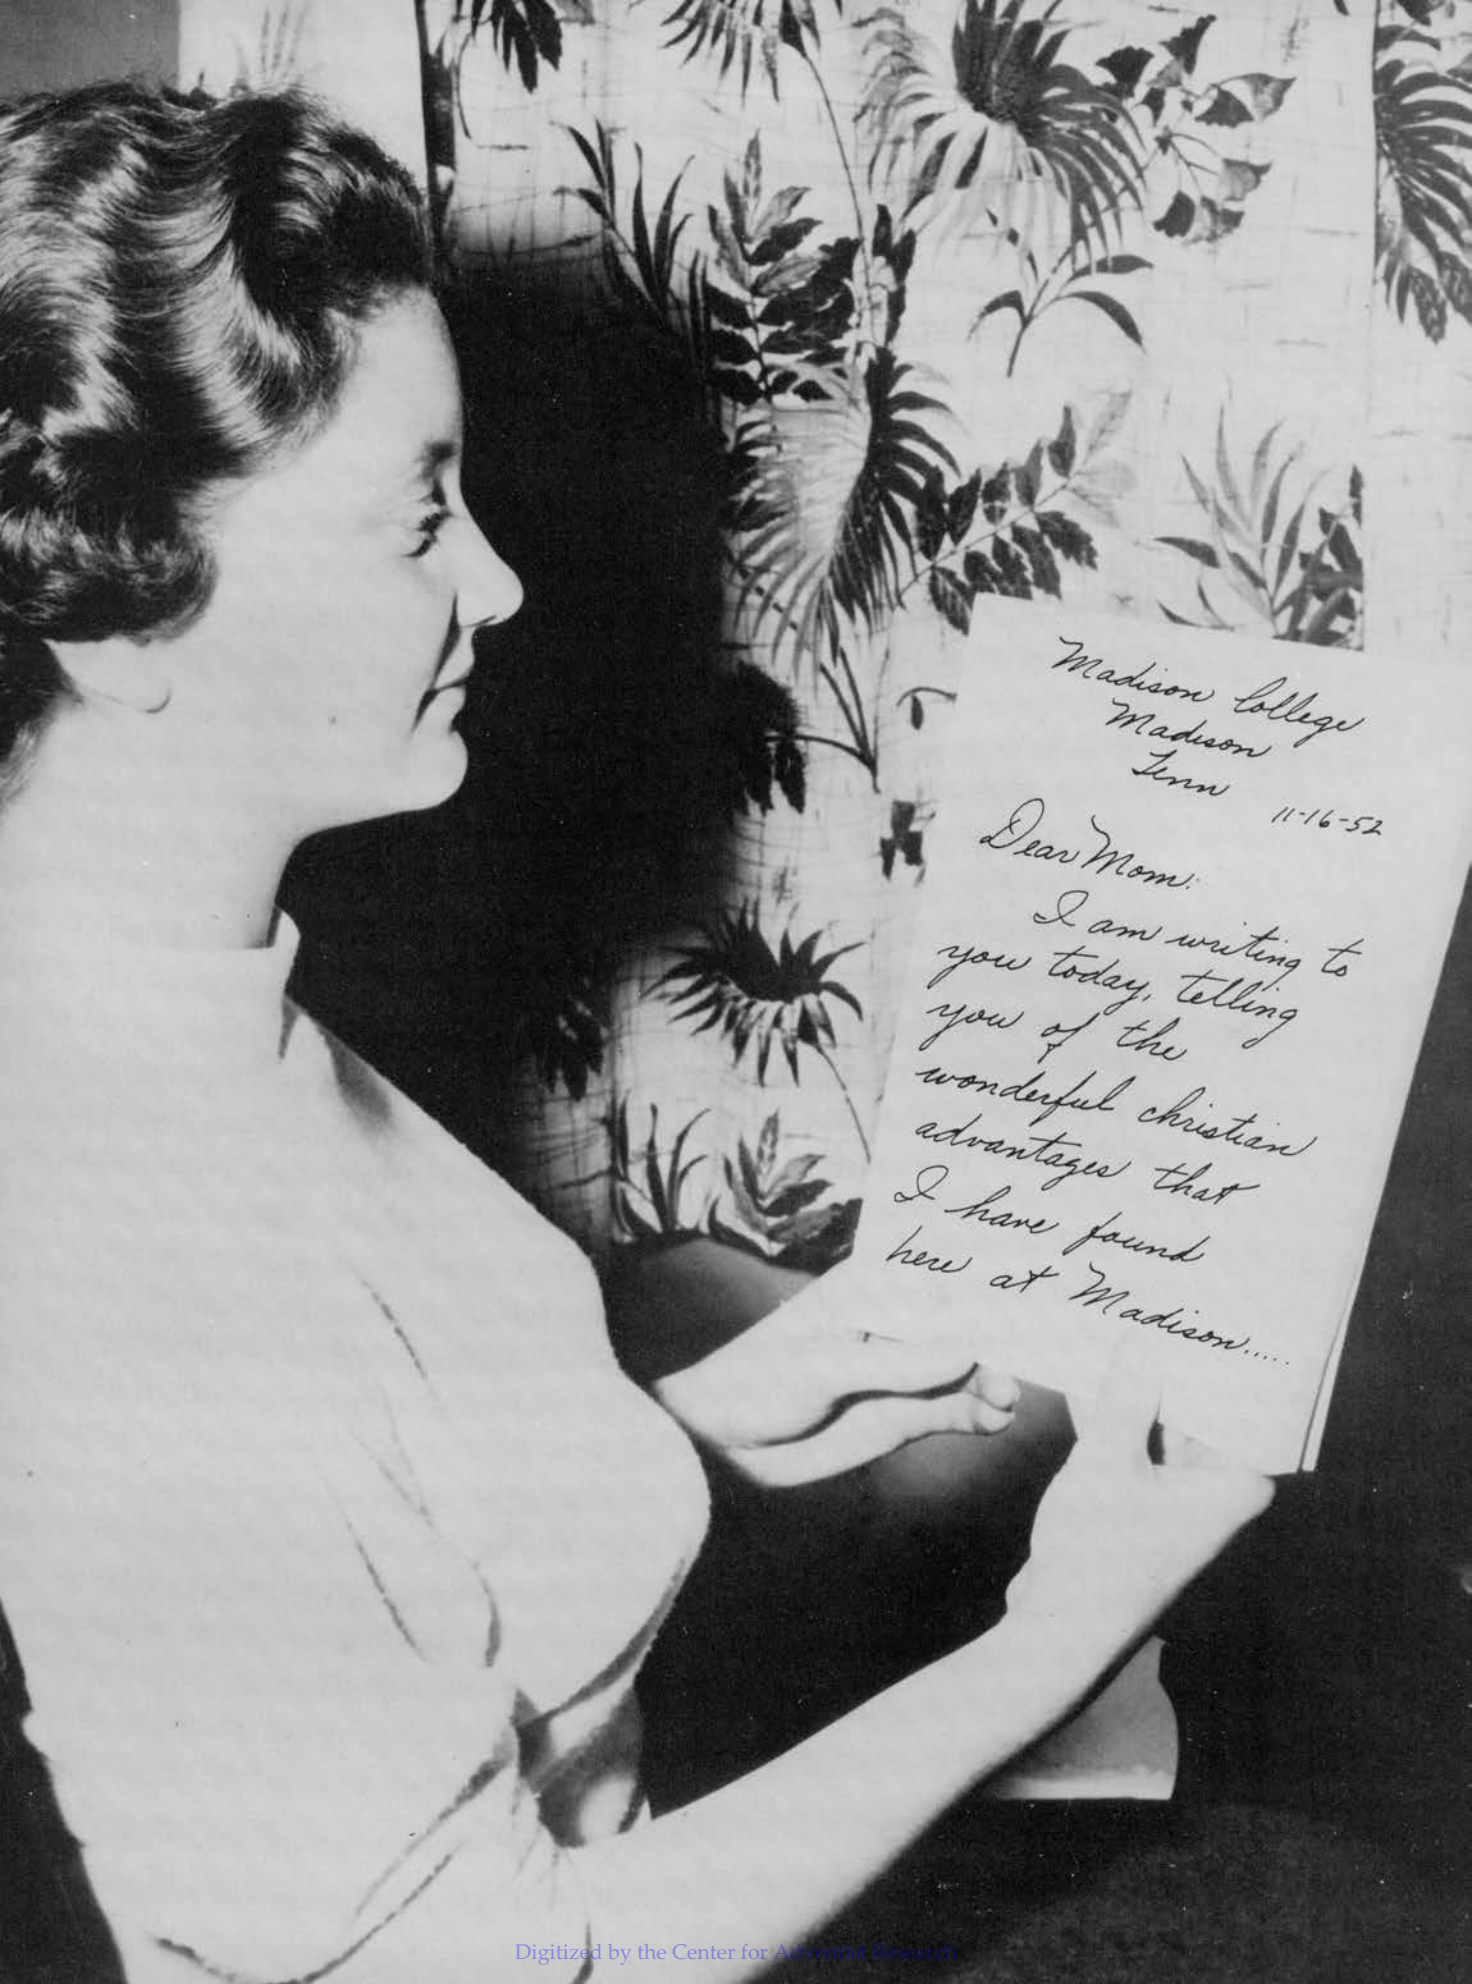 Madison College
Madison
Tenn
11-16-52
Dear Mom:
I am writing to
you today, telling
you of the
wonderful christian
advantages that
I have found
here at Madison.....
Digitized by the Center for Adventist Research